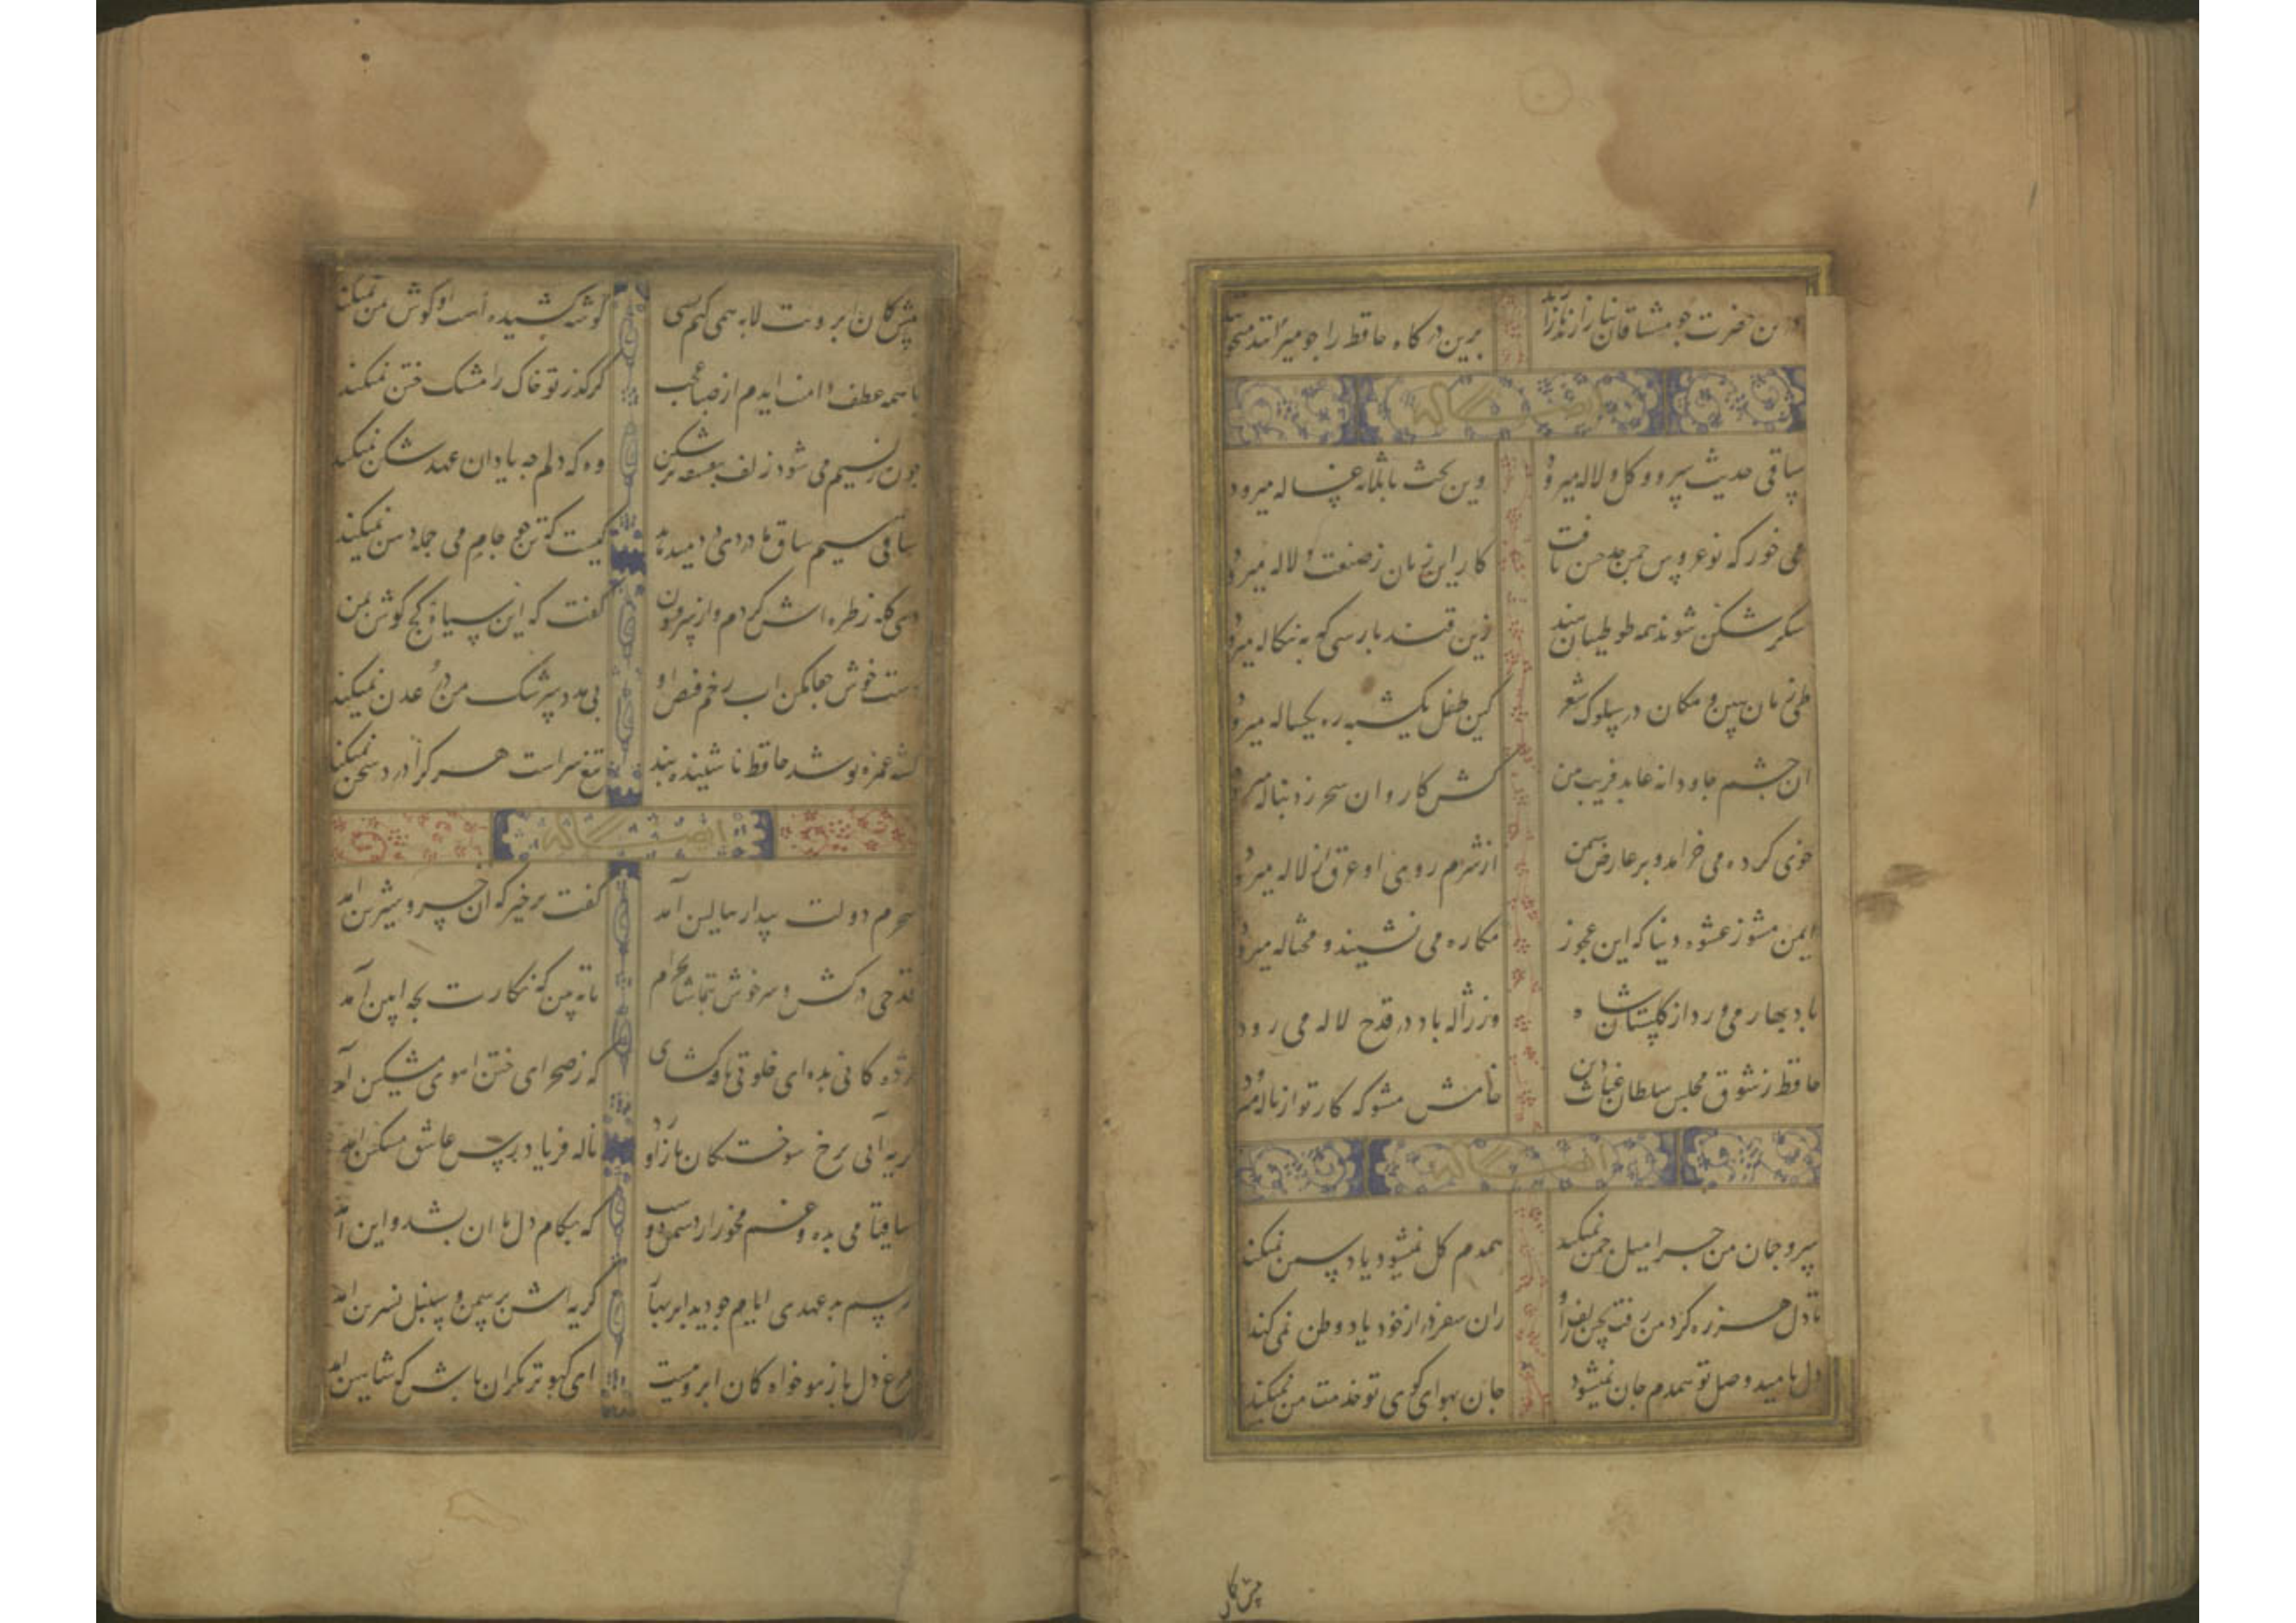 درین حضرت جو مشتاقان نیاز ارند ناز آرند برین درکاه حافظ را جو میرانند میخو
ایضا له
ساقی حدیث سرو و کل و لاله میرود وین بحث با ثلاثه غساله میرود
می خور که نوعروس جمن حد حسن یافت کار این زمان ز صنعت دلاله میرود
شکر شکن شوند همه طوطیان هند زین قند بارسی که به بنکاله میرود
طی زمان ببین و مکان در سلوک شعر کین طفل یکشبه ره یکساله میرود
ان جشم جاودانه عابد فریب من کش کاروان سحر ز دنباله میرود
خوی کرده می خرامد و بر عارض سمن از شرم روی او عرق از لاله میرود
ایمن مشو ز عشوه دنیا که این عجوز مکاره می نشیند و محتاله میرود
باد بهار می وزد از کلستان شاه وز ژاله باده در قدح لاله می رود
حافظ ز شوق مجلس سلطان غیاث دین خامش مشو که کار تو از ناله میرود
ایضا له
سرو جمان من جرا میل جمن نمیکند همدم کل نمیشود یاد سمن نمیکند
تا دل هرزه کرد من رفت بجین زلف او زان سفر دراز خود یاد وطن نمی کند
دل بامید وصل تو همدم جان نمیشود جان بهوای کوی تو خدمت تن نمیکند
پیش کمان
پیش کمان ابرویت لابه همی کنم ولی کوشه کشیده است او کوش بمن نمیکند
با همه عطف دامنت ایدم از صبا عجب کز کذر تو خاک را مشک ختن نمیکند
جون ز نسیم می شود زلف بنفشه پر شکن وه که دلم جه یاد ان عهد شکن نمیکند
ساقی سیم ساق ما در دی دمید ند کیست که تن جو جام می جمله دهن نمیکند
دی کله ز طره اش کردم و از سر فسون کفت که این سیاه کج کوش بمن
دست خوش جفا مکن اب رخم فیض او بی مدد سرشک من در عدن نمیکند
کشته غمزه تو شد حافظ ناشنیده پند تیغ سزاست هر کرا درد سخن نمیکند
ایضا له
سحرم دولت بیدار ببالین آمد کفت برخیز که ان خسرو شیرین امد
قدحی درکش و سرخوش بتماشا بخرام تا به بینی که نکارت بجه ایین آمد
مژده کانی بده ای خلوتی نافه کشای که ز صحرای ختن اهوی مشکین آمد
کریه آبی برخ سوختکان باز آورد ناله فریاد رس عاشق مسکین امد
ساقیا می بده و غم مخور از دشمن و دوست که بکام دل ما ان بشد و این آمد
رسم بد عهدی ایام جو دید ابر بهار کریه اش بر سمن و سنبل و نسرین امد
مرغ دل باز هواخواه کمان ابروییست ای کبوتر نکران باش که شاهین امد